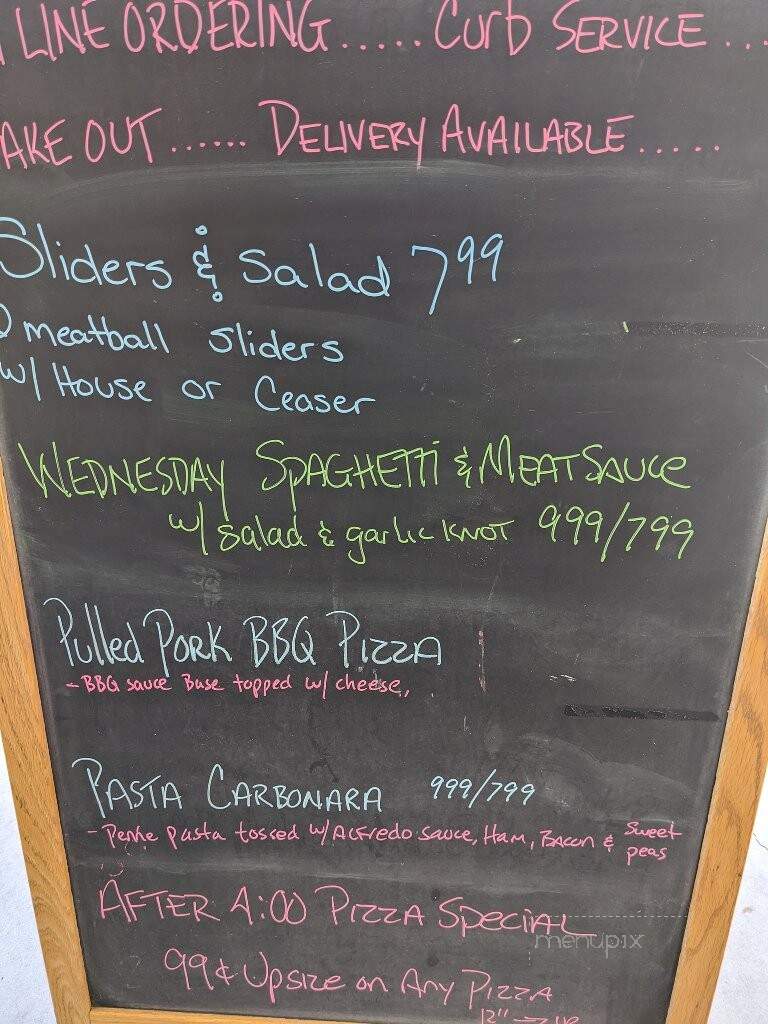 LINE ORDERING..... Curb SERVICE ...
AKE OUT...... DELIVERY AVAILABLE.....
Sliders & Salad 799
meatball sliders
w/ House or Ceaser
WEDNESDAY SPAGHETTI & MEATSAUCE
w/ salad & garlic KNOT 999/799
Pulled PORK BBQ PIZZA
- BBG sauce Base topped w/ cheese,
PASTA CARBONARA 999/799
- Penne pasta tossed w/ ALfredo sauce, Ham, Bacon & Sweet
peas
AFTER 4:00 PIZZA SPECIAL
menupix
99¢ Upsize on Any PIZZA
12"